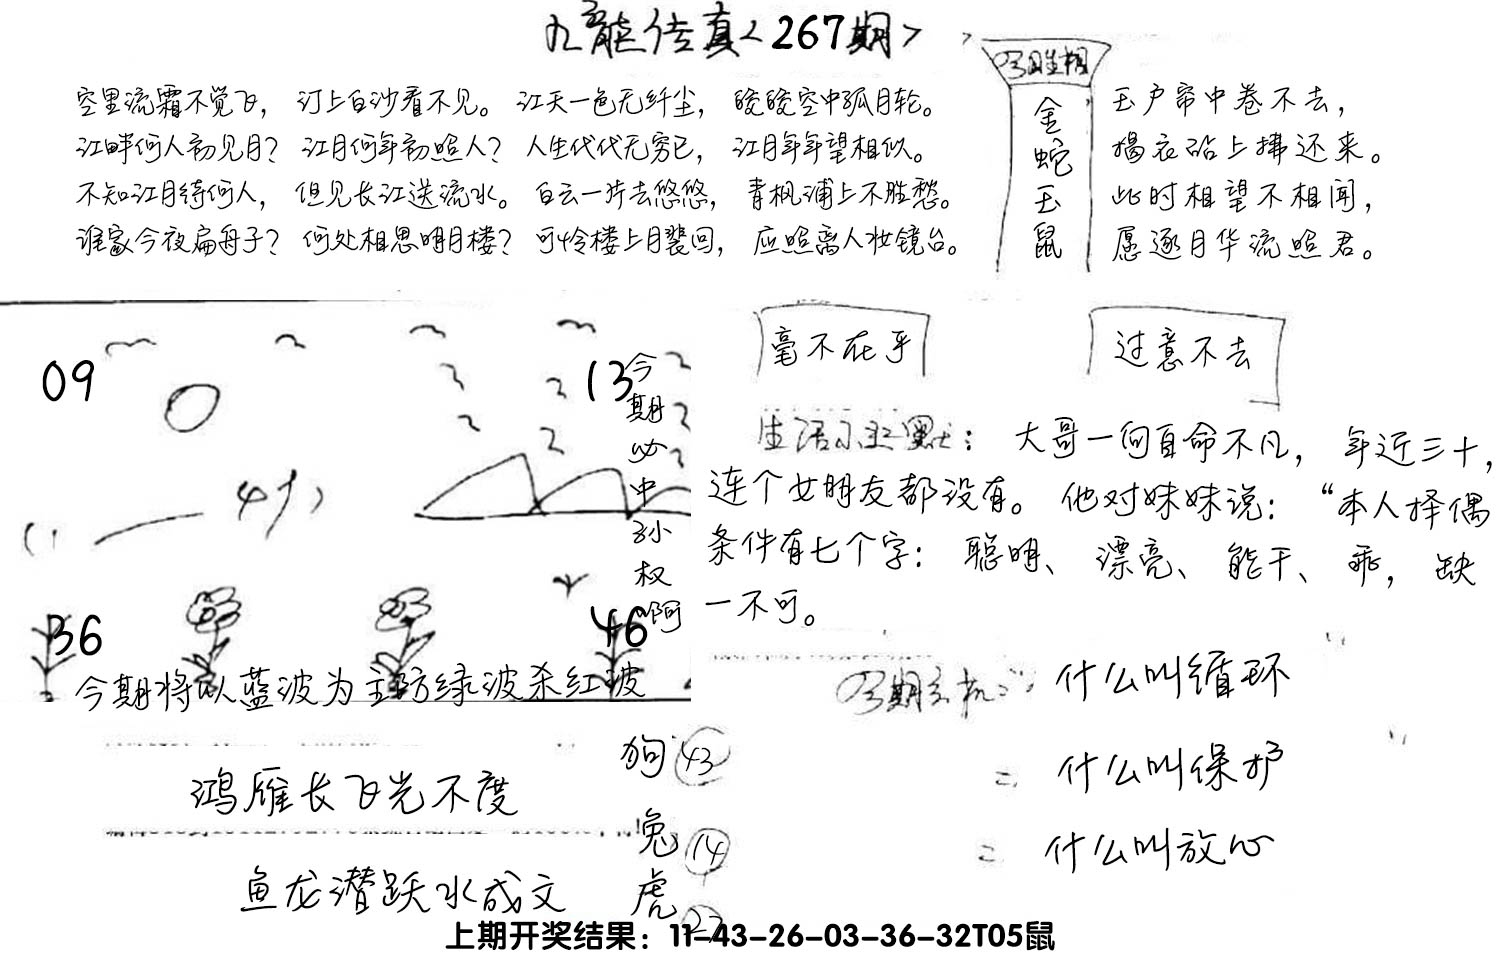 九龙传真<267期>
空里流霜不觉飞，汀上白沙看不见。江天一色无纤尘，皎皎空中孤月轮。
江畔何人初见月？江月何年初照人？人生代代无穷已，江月年年望相似。
不知江月待何人，但见长江送流水。白云一片去悠悠，青枫浦上不胜愁。
谁家今夜扁舟子？何处相思明月楼？可怜楼上月裴回，应照离人妆镜台。
金
蛇
玉
鼠
玉户帘中卷不去，
捣衣砧上拂还来。
此时相望不相闻，
愿逐月华流照君。
09
13
36
46
今
期
必
中
孙
权
啊
今期将以蓝波为主防绿波杀红波
毫不在乎
过意不去
生活小幽默：大哥一向自命不凡，年近三十，
连个女朋友都没有。他对妹妹说：“本人择偶
条件有七个字：聪明、漂亮、能干、乖，缺
一不可。
什么叫循环
= 什么叫保护
= 什么叫放心
鸿雁长飞光不度
鱼龙潜跃水成文
狗 43
兔 14
虎
上期开奖结果：11-43-26-03-36-32T05鼠